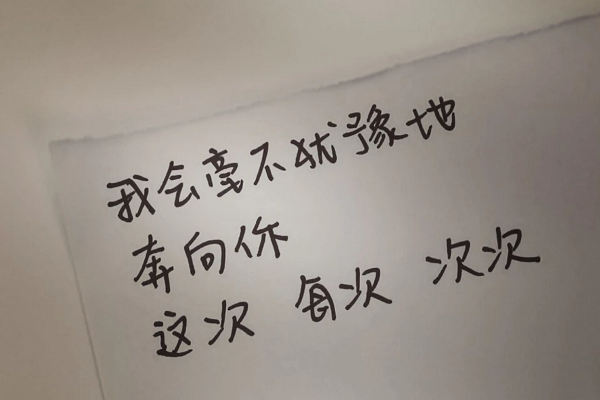 我会毫不犹豫地
奔向你
这次 每次 次次